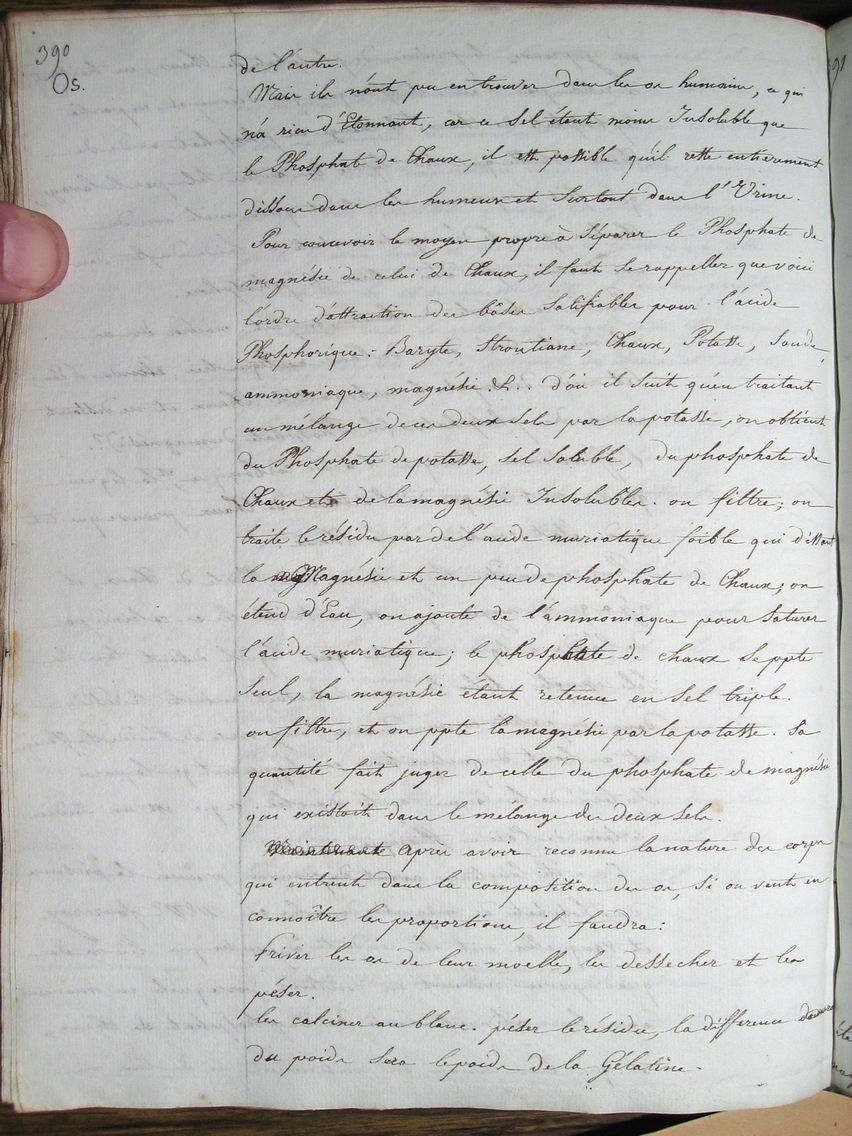 390
Os.
de l'autre.
Mais ils n'ont pu en trouver dans les os humains, ce qui
n'a rien d'Etonnant, car ce Sel étant moins Insoluble que
le Phosphate de Chaux, il est possible qu'il reste entierement
dissous dans les humeurs et Surtout dans l'Urine.
Pour concevoir le moyen propre à Séparer le Phosphate de
magnésie de celui de Chaux, il faut se rappeller que voici
l'ordre d'attraction des bâses Salifiables pour l'acide
Phosphorique : Baryte, Strontiane, Chaux, Potasse, Soude,
ammoniaque, magnésie &.. d'où il suit qu'en traitant
un mélange de ces deux Sels par la potasse, on obtient
du Phosphate de potasse, Sel Soluble, du phosphate de
Chaux et de la magnésie Insolubles. on filtre; on
traite le résidu par de l'acide muriatique foible qui dissout
la Magnésie et un peu de phosphate de Chaux; on
étend d'Eau, on ajoute de l'ammoniaque pour Saturer
l'acide muriatique; le phosphate de chaux Se ppte
Seul, la magnésie étant retenue en Sel triple.
on filtre, et on ppte la magnésie par la potasse. Sa
quantité fait juger de celle du phosphate de magnésie
qui existoit dans le mélange des deux Sels.
Maintenant après avoir reconnu la nature des corps
qui entrent dans la composition des os, Si on veut en
connoître les proportions, il faudra:
Priver les os de leur moelle, les dessecher et les
péser.
les calciner au blanc. péser le résidu, la différence
du poids Sera le poids de la Gélatine.